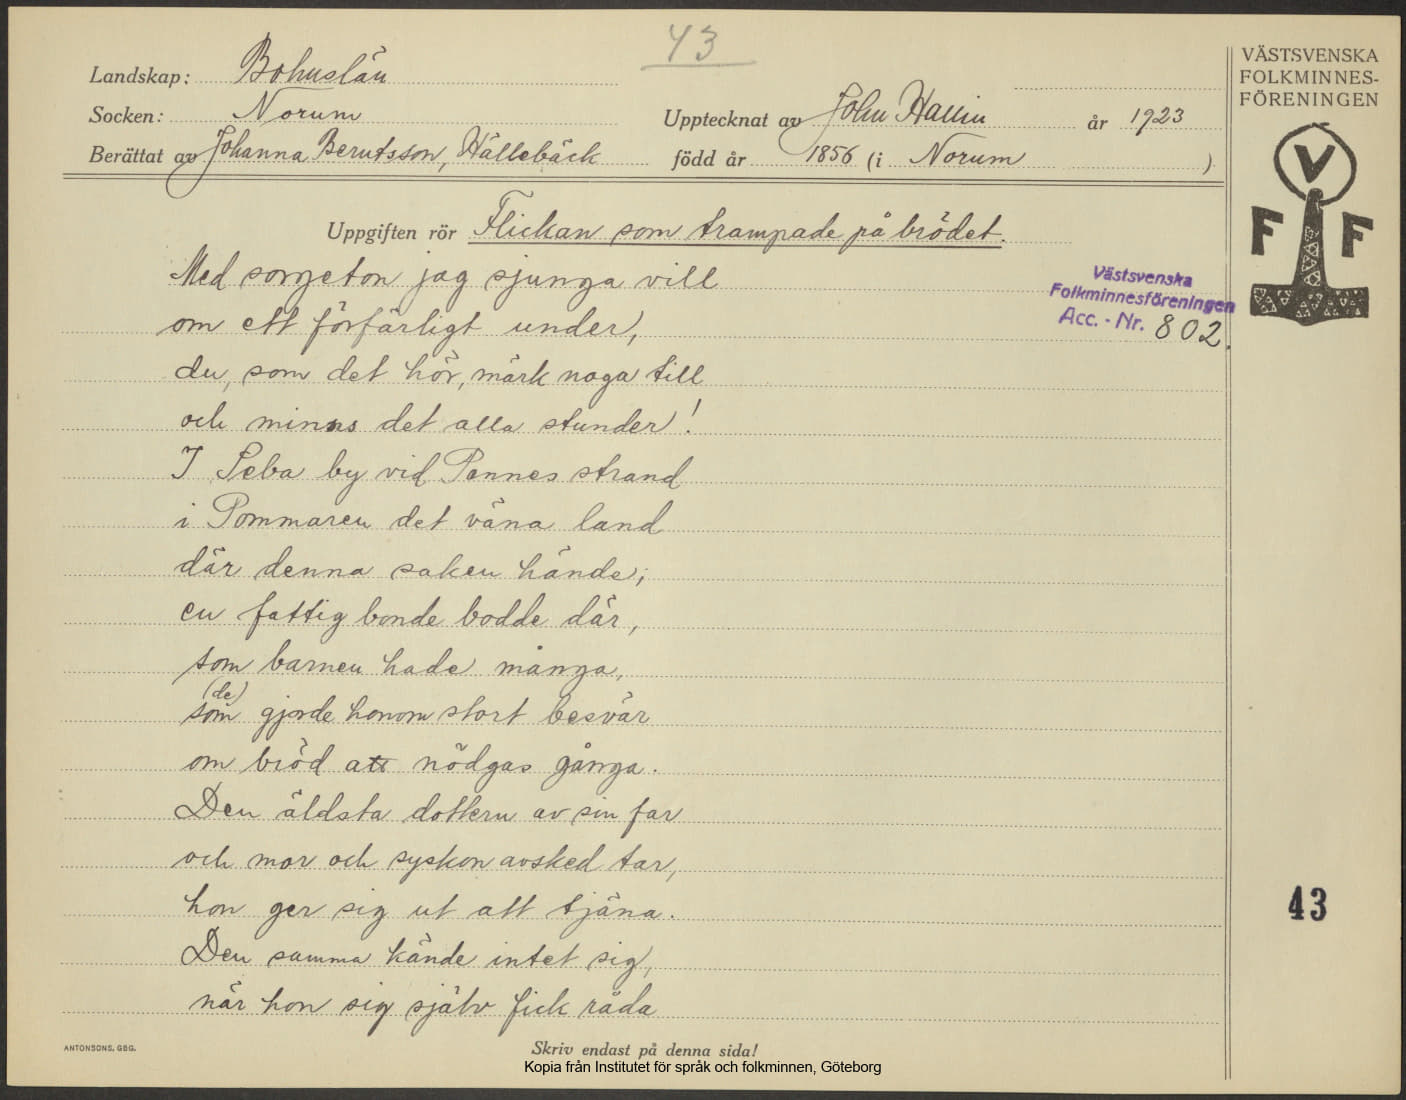 43
Landskap: Bohuslän
Socken: Norum
Berättat av Johanna Berntsson, Hällebäck
Upptecknat av John Hallin år 1923
född år 1856 (i Norum )
VÄSTSVENSKA
FOLKMINNES-
FÖRENINGEN
V
F F
Uppgiften rör Flickan som trampade på brödet.
Västsvenska
Folkminnesföreningen
Acc. - Nr. 802.
Med sorgeton jag sjunga vill
om ett förfärligt under,
du, som det hör, märk noga till
och minns det alla stunder!
I Seba by vid Pennes strand
i Pommaren det väna land
där denna saken hände;
en fattig bonde bodde där,
som barnen hade många,
(de)
som gjorde honom stort besvär
om bröd att nödgas gånga.
Den äldsta dottern av sin far
och mor och syskon avsked tar,
hon ger sig ut att tjäna.
Den samma kände intet sig,
när hon sig själv fick råda
43
ANTONSONS, GBG.
Skriv endast på denna sida!
Kopia från Institutet för språk och folkminnen, Göteborg